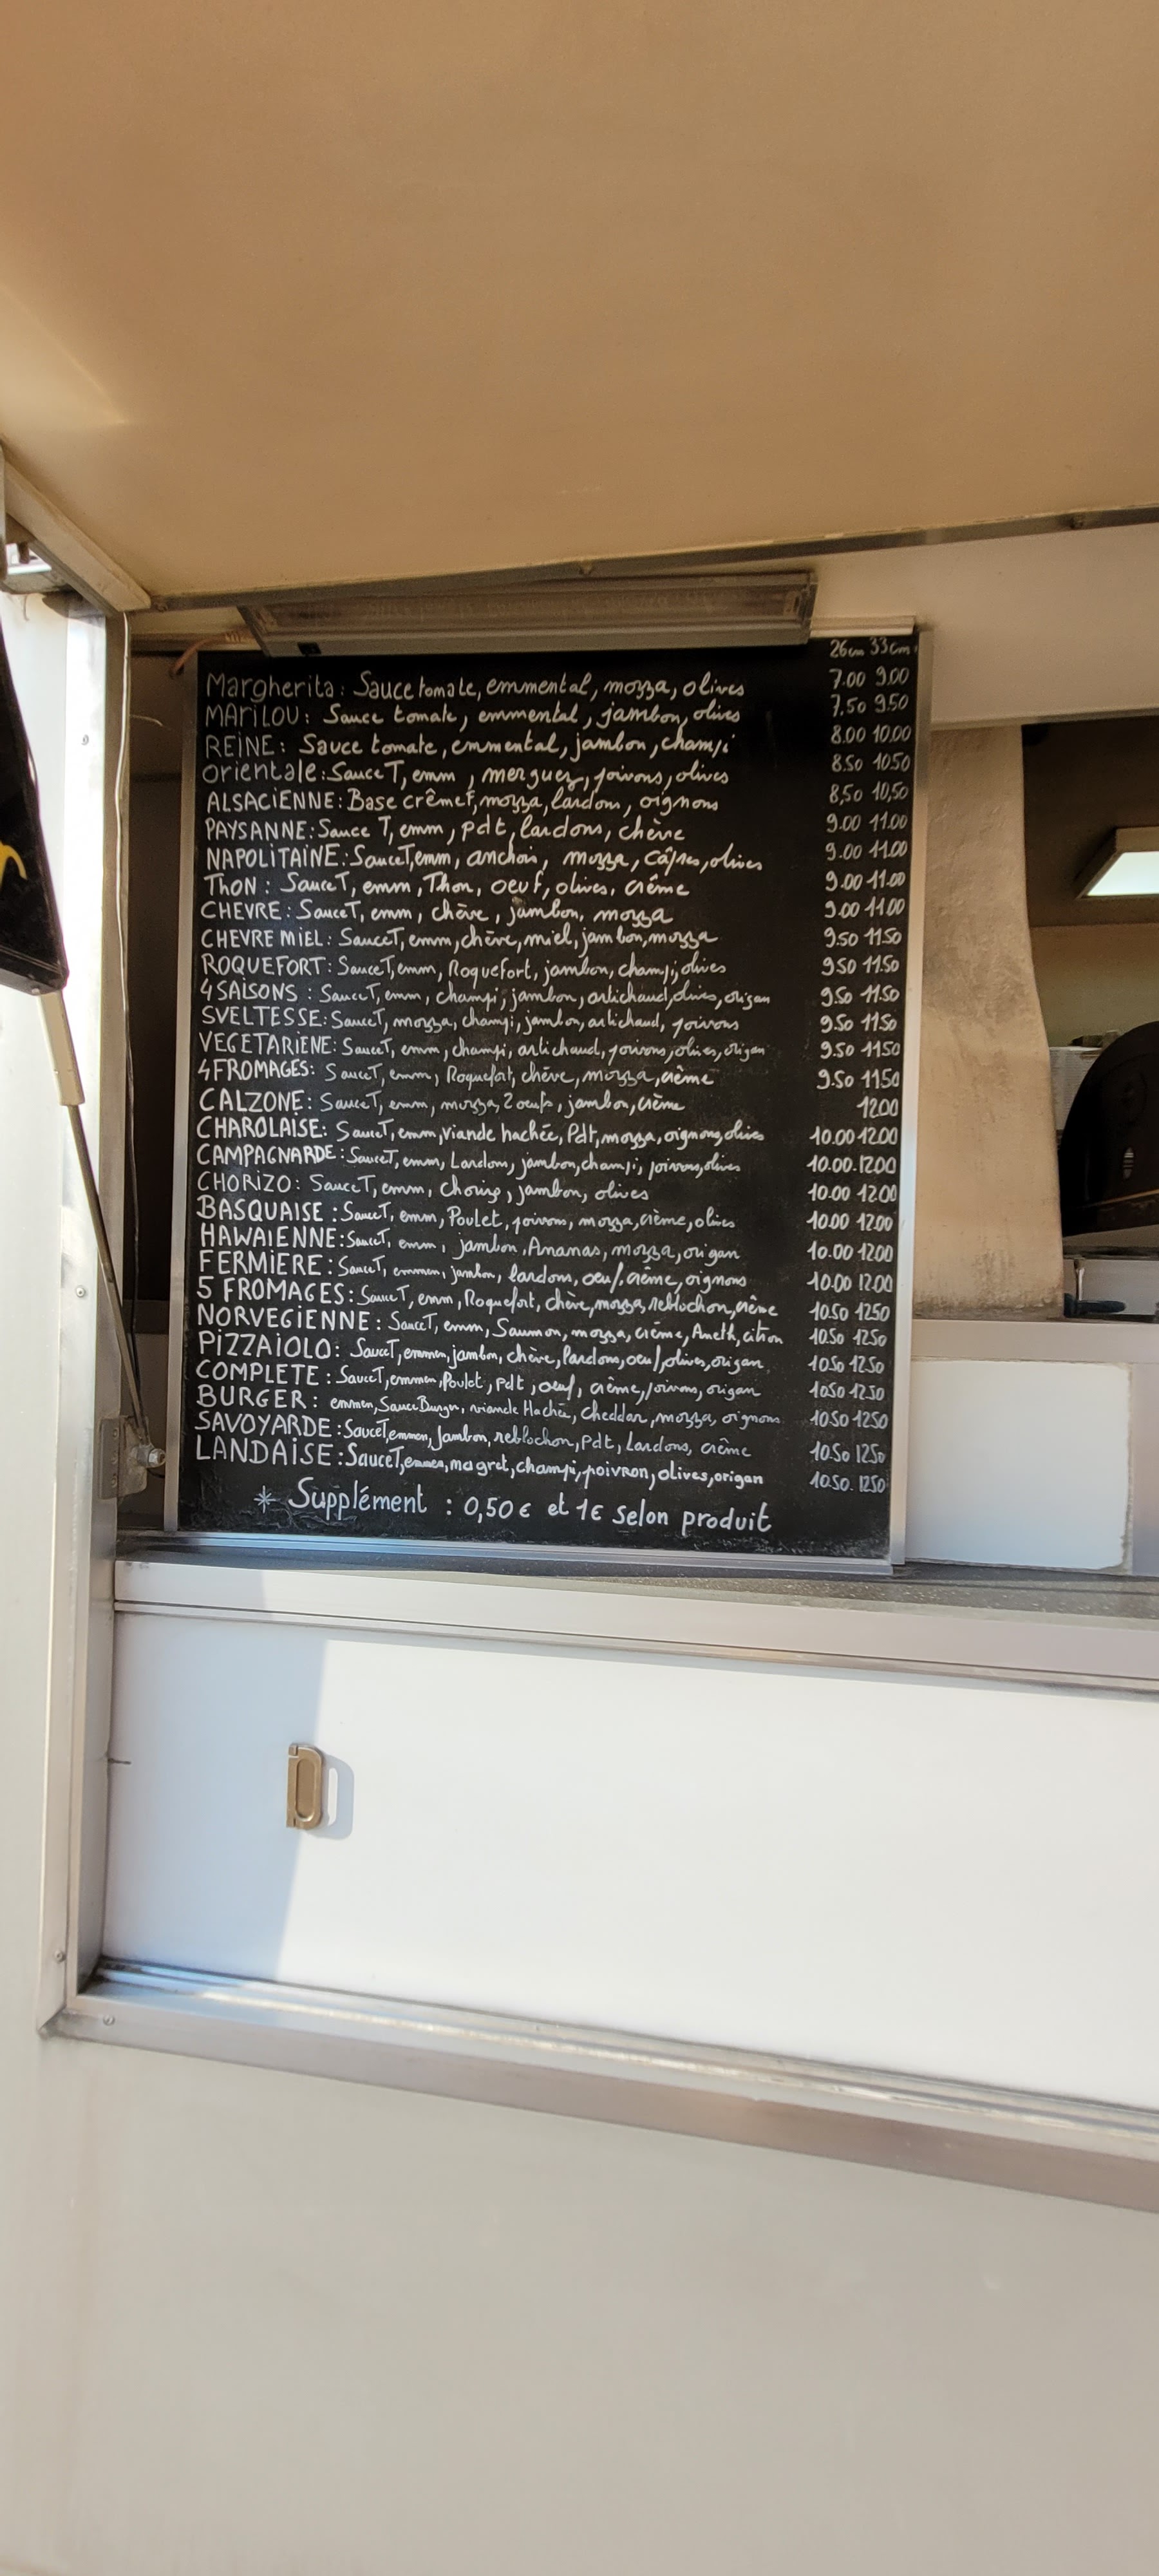 26cm 33cm
Margherita : Sauce tomate, emmental, mozza, olives 7.00 9.00
MARILOU : Sauce tomate, emmental, jambon, olives 7,50 9.50
REINE : Sauce tomate, emmental, jambon, champi 8.00 10.00
Orientale : Sauce T, emm, merguez, poivrons, olives 8.50 10.50
ALSACIENNE : Base crême f, mozza, lardons, oignons 8,50 10,50
PAYSANNE : Sauce T, emm, pdt, lardons, chèvre 9.00 11.00
NAPOLITAINE : Sauce T, emm, anchois, mozza, câpres, olives 9.00 11.00
THON : Sauce T, emm, Thon, oeuf, olives, crême 9.00 11.00
CHEVRE : Sauce T, emm, chèvre, jambon, mozza 9.00 11.00
CHEVRE MIEL : Sauce T, emm, chèvre, miel, jambon, mozza 9.50 11.50
ROQUEFORT : Sauce T, emm, Roquefort, jambon, champi, olives 9.50 11.50
4 SAISONS : Sauce T, emm, champi, jambon, artichaud, olives, origan 9.50 11.50
SVELTESSE : Sauce T, mozza, champi, jambon, artichaud, poivrons 9.50 11.50
VEGETARIENE : Sauce T, emm, champi, artichaud, poivrons, olives, origan 9.50 11.50
4 FROMAGES : Sauce T, emm, Roquefort, chèvre, mozza, crème 9.50 11.50
CALZONE : Sauce T, emm, mozza, 2 oeufs, jambon, crème 12.00
CHAROLAISE : Sauce T, emm, viande hachée, Pdt, mozza, oignons, olives 10.00 12.00
CAMPAGNARDE : Sauce T, emm, Lardons, jambon, champi, poivrons, olives 10.00 12.00
CHORIZO : Sauce T, emm, Chorizo, jambon, olives 10.00 12.00
BASQUAISE : Sauce T, emm, Poulet, poivrons, mozza, crème, olives 10.00 12.00
HAWAIENNE : Sauce T, emm, jambon, Ananas, mozza, origan 10.00 12.00
FERMIERE : Sauce T, emmen, jambon, lardons, oeuf, crème, oignons 10.00 12.00
5 FROMAGES : Sauce T, emm, Roquefort, chèvre, mozza, reblochon, crème 10.50 12.50
NORVEGIENNE : Sauce T, emm, Saumon, mozza, crème, Aneth, citron 10.50 12.50
PIZZAIOLO : Sauce T, emmen, jambon, chèvre, lardons, oeuf, olives, origan 10.50 12.50
COMPLETE : Sauce T, emmen, Poulet, pdt, oeuf, crème, poivrons, origan 10.50 12.50
BURGER : emmen, Sauce Burger, viande Hachée, cheddar, mozza, oignons 10.50 12.50
SAVOYARDE : Sauce T, emmen, Jambon, reblochon, Pdt, Lardons, crème 10.50 12.50
LANDAISE : Sauce T, emmen, magret, champi, poivron, olives, origan 10.50. 12.50
* Supplément : 0,50 € et 1€ selon produit